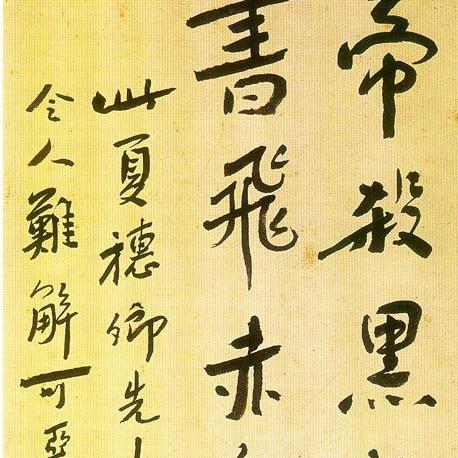 帝殺黑
書飛赤
此夏穗卿先
令人難解可